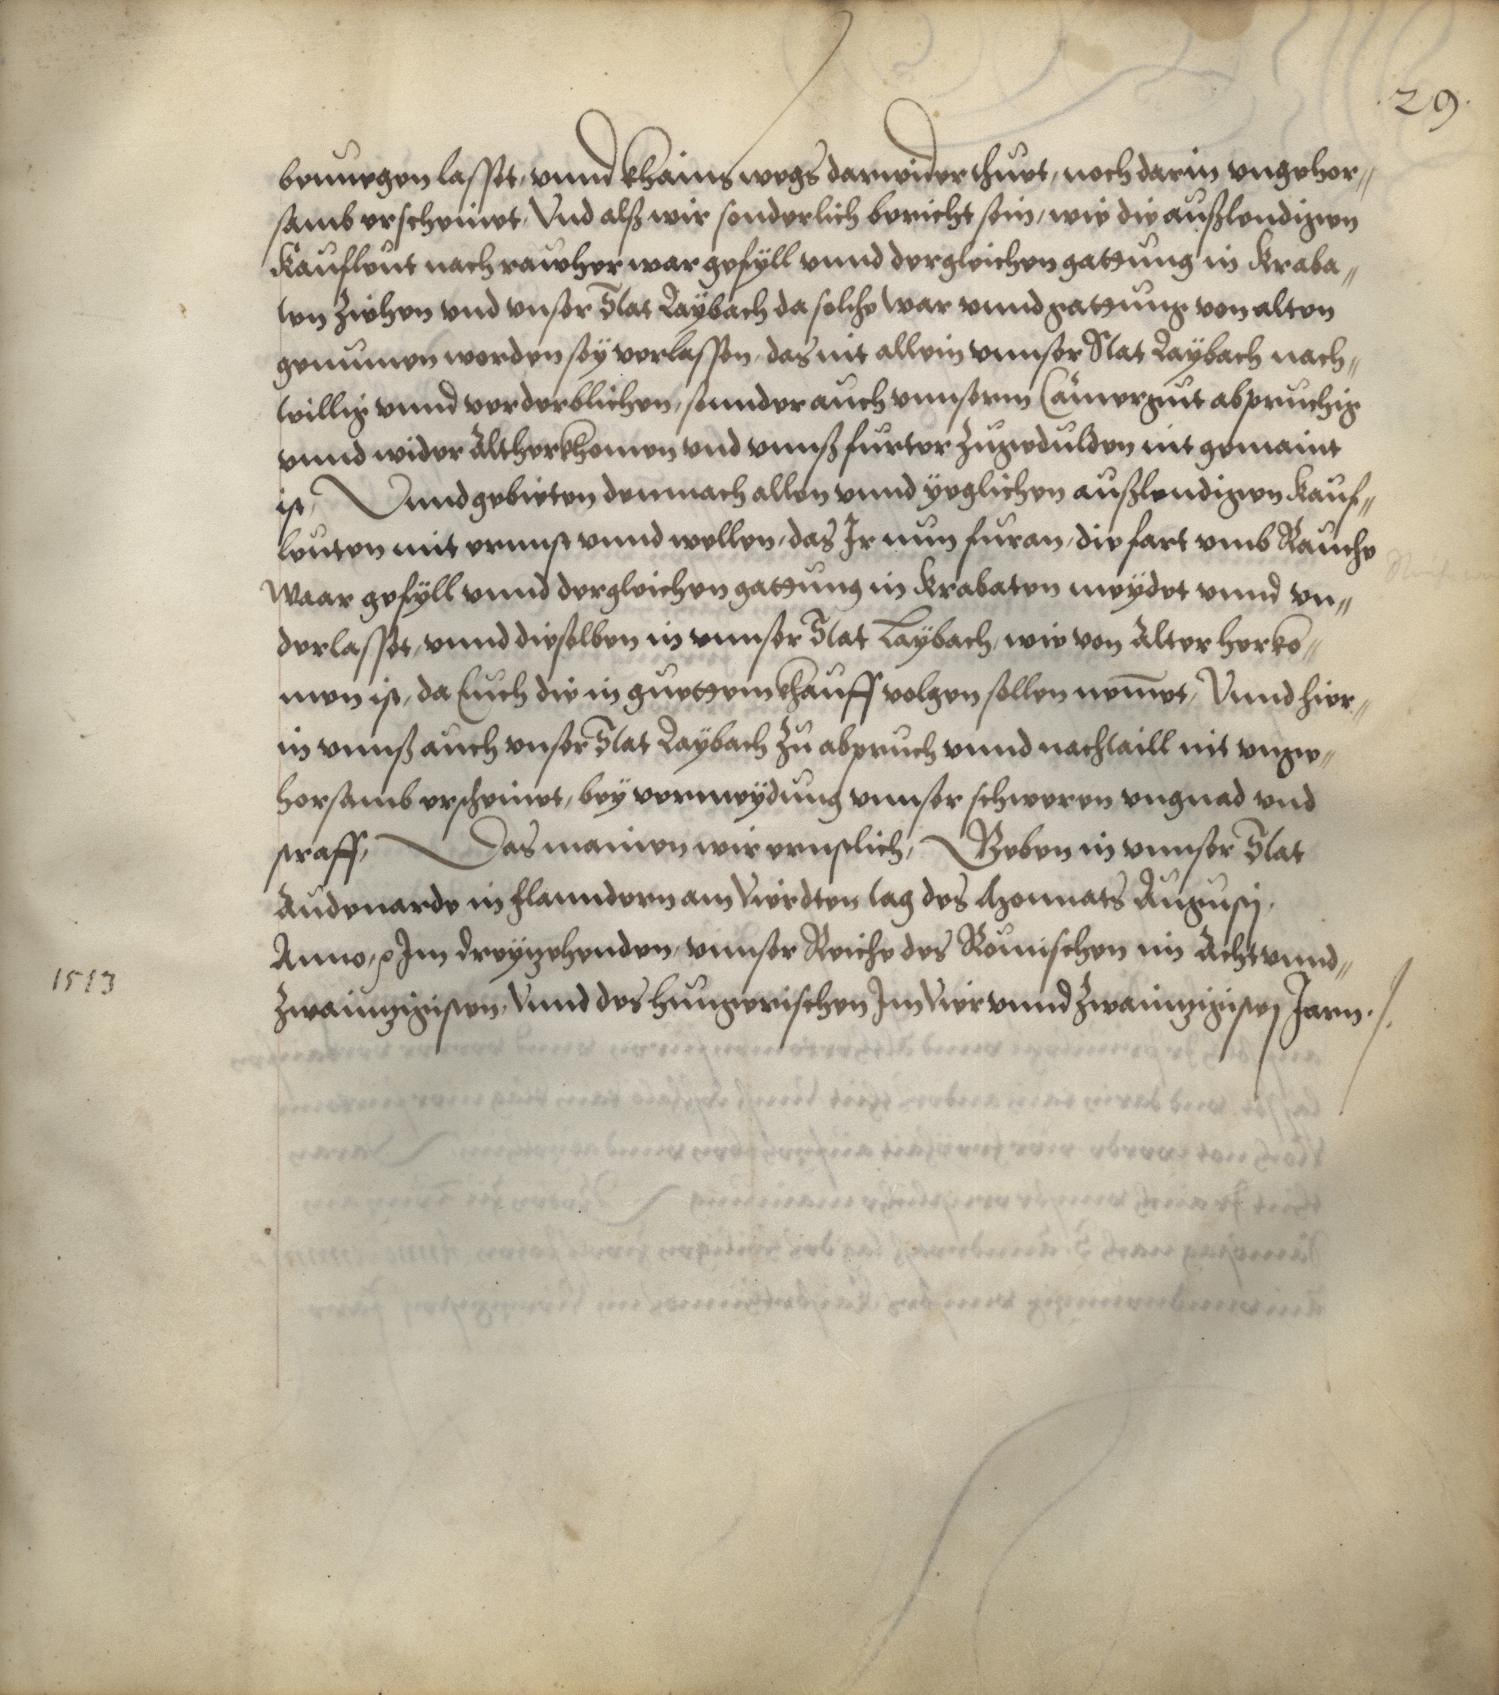 .29.
benuegen lasset, vnnd khains wegs darwider thuet, noch darin vngehor„
samb erscheinet, Vnd alß wir sonderlich bericht sein, wie die außlendigen
Kaufleut nach rauher war gefyll vnnd dergleichen gattung in Kraba„
ten ziehen vnd vnser Stat Laÿbach da solche war vnnd gattung von alten
genumen worden seÿ verlassen, das nit allein vnnser Stat Laÿbach nach„
tillig vnnd verderblichen, sunder auch vnnserm Camergut abpruchig
vnnd wider Altherkhomen vnd vnnß furter zugedulden nit gemaint
ist, Vnnd gebieten demnach allen vnnd ÿeglichen außlendigen Kauf„
leuten mit ernnst vnnd wellen, das Ir nun furan, die fart vmb Rauche
Waar gefyll vnnd dergleichen gattung in Krabaten meydet vnnd vn„
derlasset, vnnd dieselben in vnnser Stat Laÿbach, wie von Alter herko„
men ist, da Euch die in guettem khauff volgen sollen nemet, Vnnd hier„
in vnnß auch vnser Stat Laÿbach zu abpruch vnnd nachtaill nit vnge„
horsamb erscheinet, bey vermeÿdung vnnser schweren vngnad vnd
straff, Das mainen wir ernstlich, Geben in vnnser Stat
Audenarde in Flanndern am Vierdten tag des Monnats Augusti,
Anno, Im dreyzehenden, vnnser Reiche des Römischen im Acht vnnd„
1513
zwaintzigisten, Vnnd des hungerischen Im Vier vnnd zwaintzigisten Jarn.